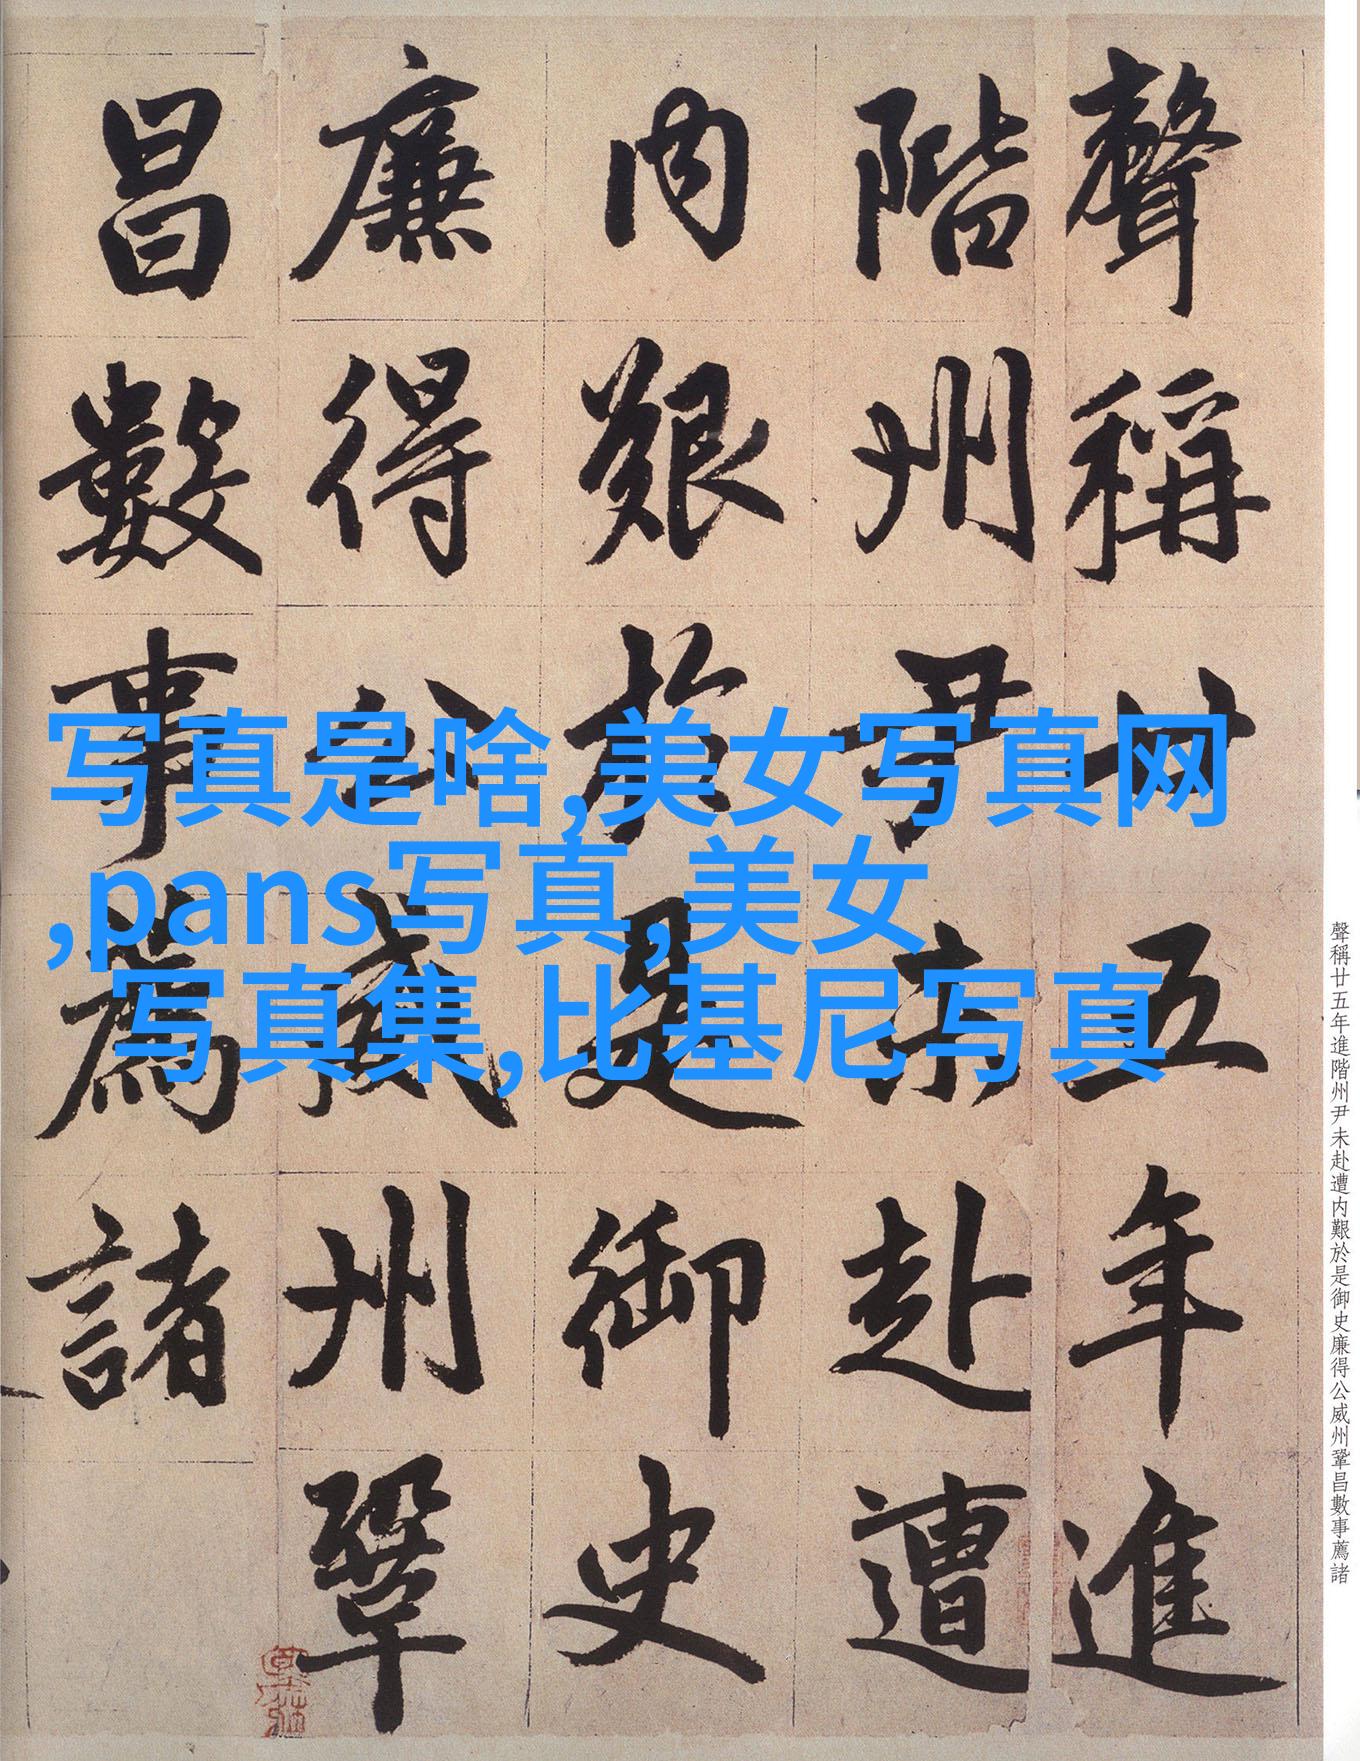 聲稱廿五年進
階州尹未赴遭
内艱於是御史
廉得公威州鞏
昌數事薦諸
写真是啥,美女写真网
,pans写真,美女
写真集,比基尼写真
聲稱廿五年進階州尹未赴遭内艱於是御史廉得公威州鞏昌數事薦諸